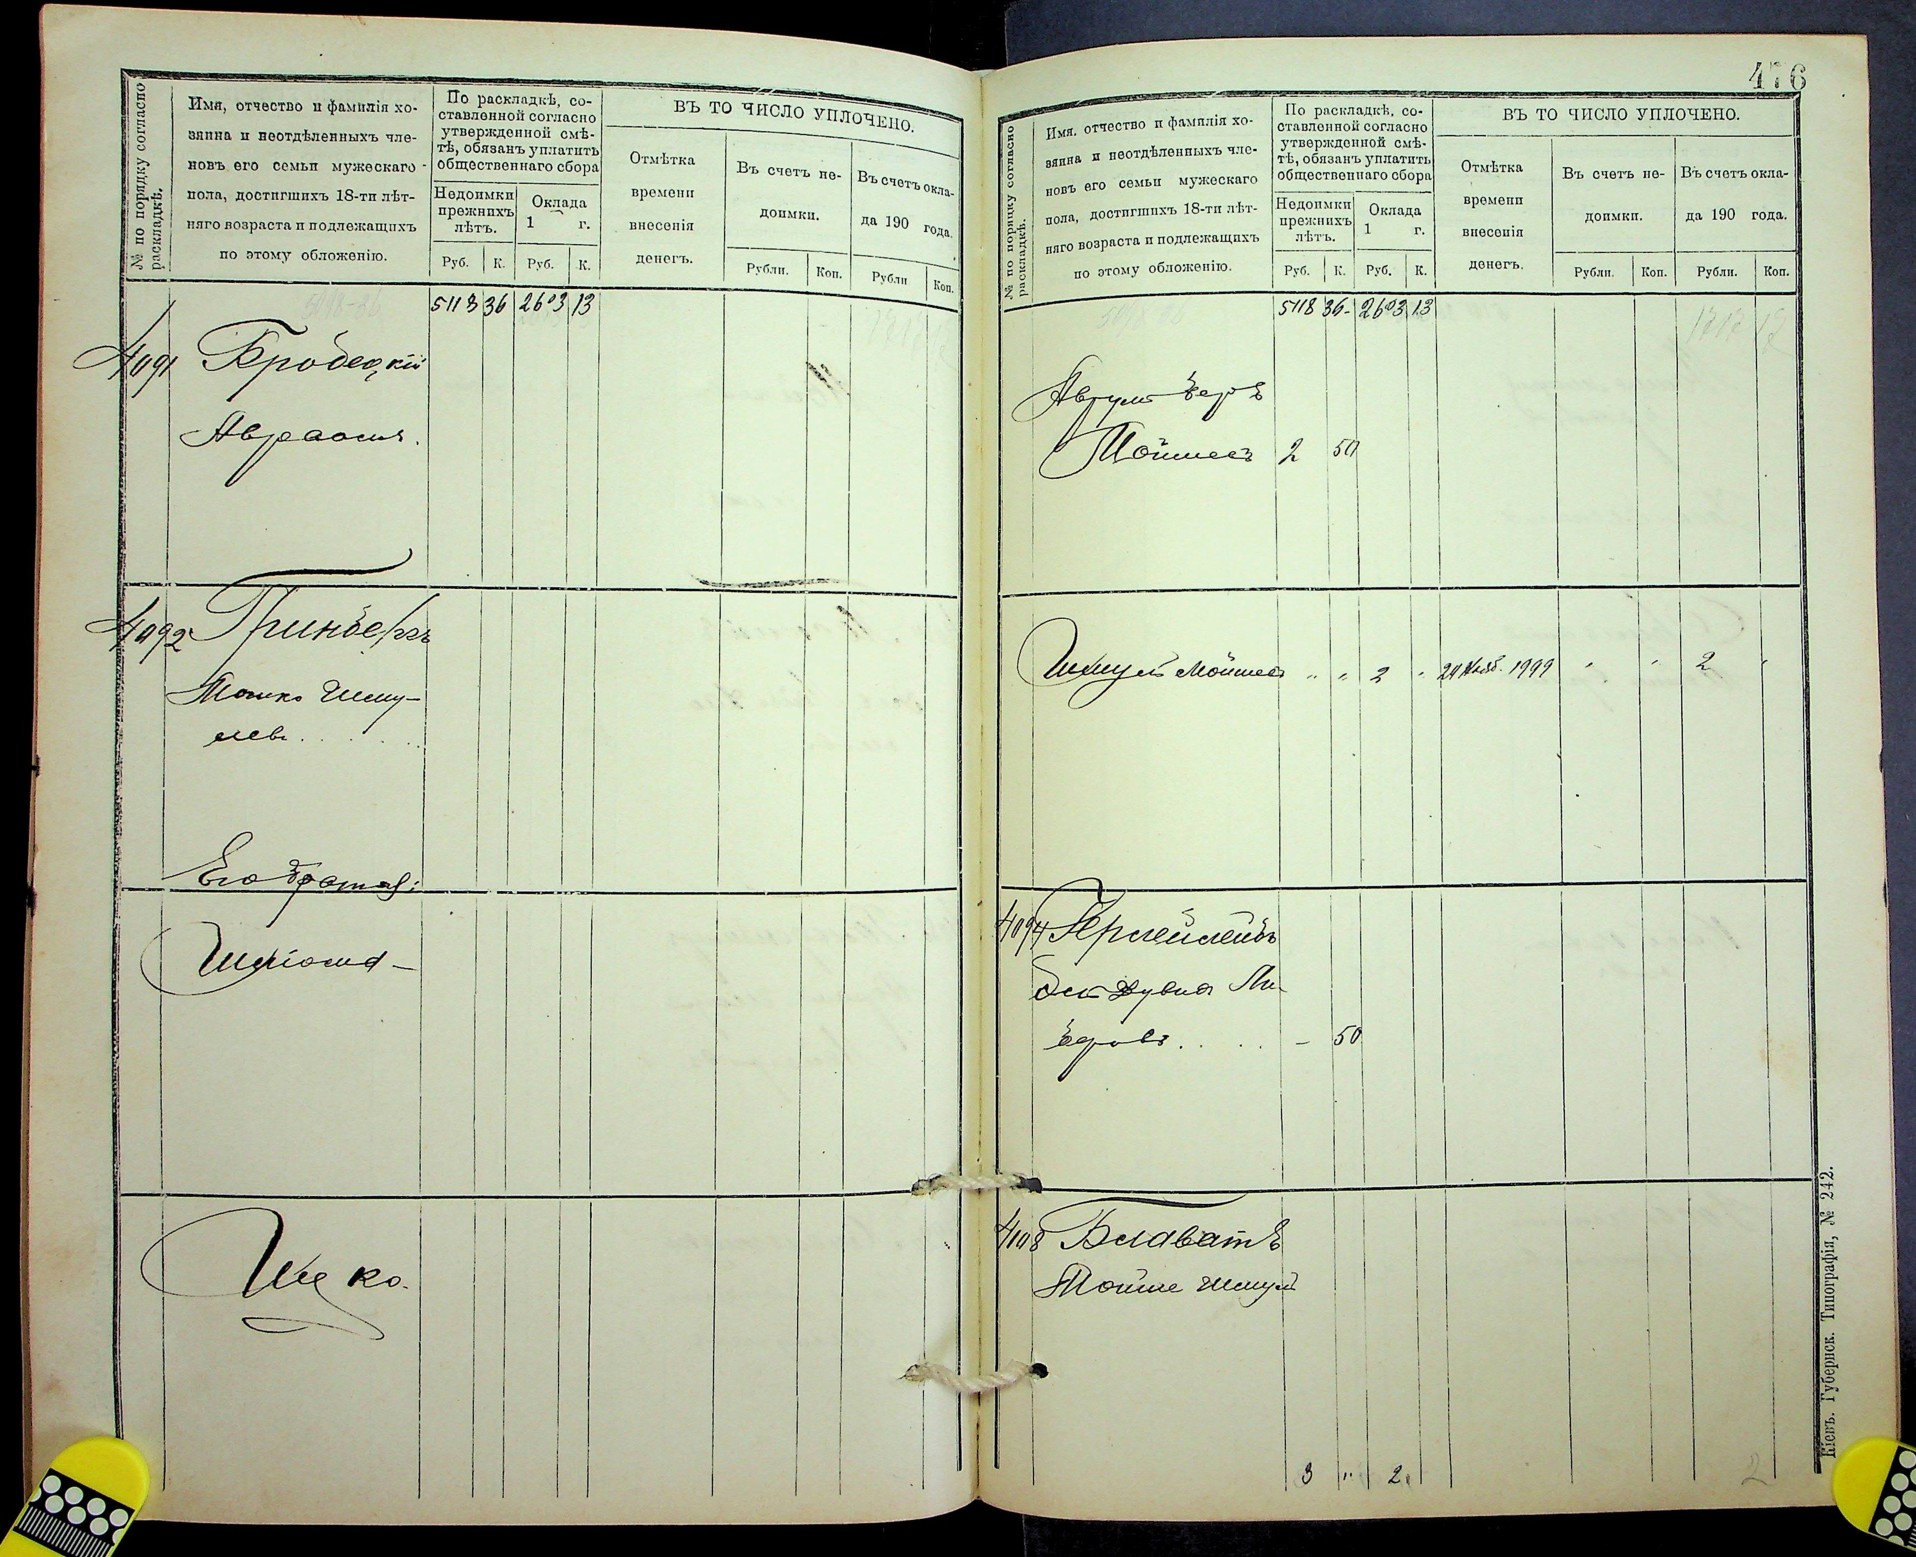 № по порядку согласно раскладкѣ.
Имя, отчество и фамилія хо-
зяина и неотдѣленныхъ чле-
новъ его семьи мужескаго
пола, достигшихъ 18-ти лѣт-
няго возраста и подлежащихъ
по этому обложенію.
По раскладкѣ, со-
ставленной согласно
утвержденной смѣ-
тѣ, обязанъ уплатить
общественнаго сбора
Недоимки
прежнихъ
лѣтъ.
Оклада
1 г.
Руб. К. Руб. К.
ВЪ ТО ЧИСЛО УПЛОЧЕНО.
Отмѣтка
времени
внесенія
денегъ.
Въ счетъ не-
доимки.
Рубли. Коп.
Въ счетъ окла-
да 190 года.
Рубли Коп.
5118 36 2603 13
4091 Бродецкій
Авраамъ.
4092 Гринбергъ
Мошко Шму-
левъ . . . .
Его братья:
Шліома
Ицко.
476
№ по порядку согласно раскладкѣ.
Имя, отчество и фамилія хо-
зяина и неотдѣленныхъ чле-
новъ его семьи мужескаго
пола, достигшихъ 18-ти лѣт-
няго возраста и подлежащихъ
по этому обложенію.
По раскладкѣ, со-
ставленной согласно
утвержденной смѣ-
тѣ, обязанъ уплатить
общественнаго сбора
Недоимки
прежнихъ
лѣтъ.
Оклада
1 г.
Руб. К. Руб. К.
ВЪ ТО ЧИСЛО УПЛОЧЕНО.
Отмѣтка
времени
внесенія
денегъ.
Въ счетъ не-
доимки.
Рубли. Коп.
Въ счетъ окла-
да 190 года.
Рубли. Коп.
5118 36 2603 13
Мойшевъ 2 50
Шмуль Мойшев " " 2 " " " 2 "
4094
. . . . - 50
4108 Блаватъ
Мойше Шмул
3 " 2
2
Кіевъ. Губернск. Типографія, № 242.